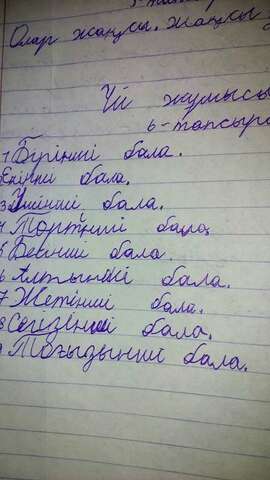 Олар жақсы. жаңқы
Үй жұмысы
6-тапсыр
1 Бірінші бала.
Екінші бала.
3 Үшінші бала.
4 Төртінші бала.
5 Бесінші бала.
6 Алтыншы бала.
7 Жетінші бала.
8 Сегізінші бала.
9 Тоғызыншы бала.